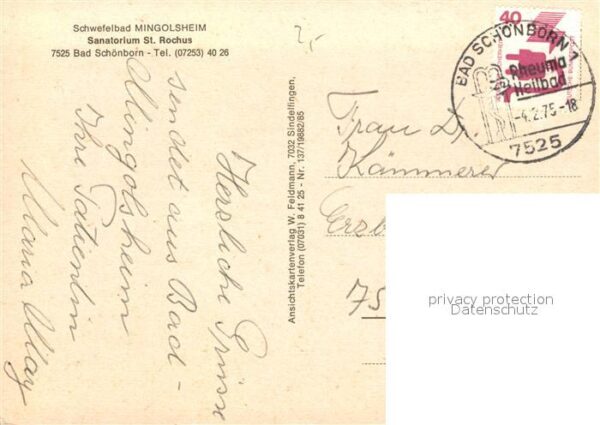 Schwefelbad MINGOLSHEIM
Sanatorium St. Rochus
7525 Bad Schönborn - Tel. (07253) 40 26
2,-
Herzliche Grüsse
sendet aus Bad-
Mingolsheim
Ihre Patientin
Maria
Ansichtskartenverlag W. Feldmann, 7032 Sindelfingen,
Telefon (07031) 8 41 25 - Nr. 137/19882/85
40
BAD SCHÖNBORN 1
Rheuma
Heilbad
-4.2.75-18
7525
Frau Dr.
Kämmerer
Erzb
75
privacy protection
Datenschutz